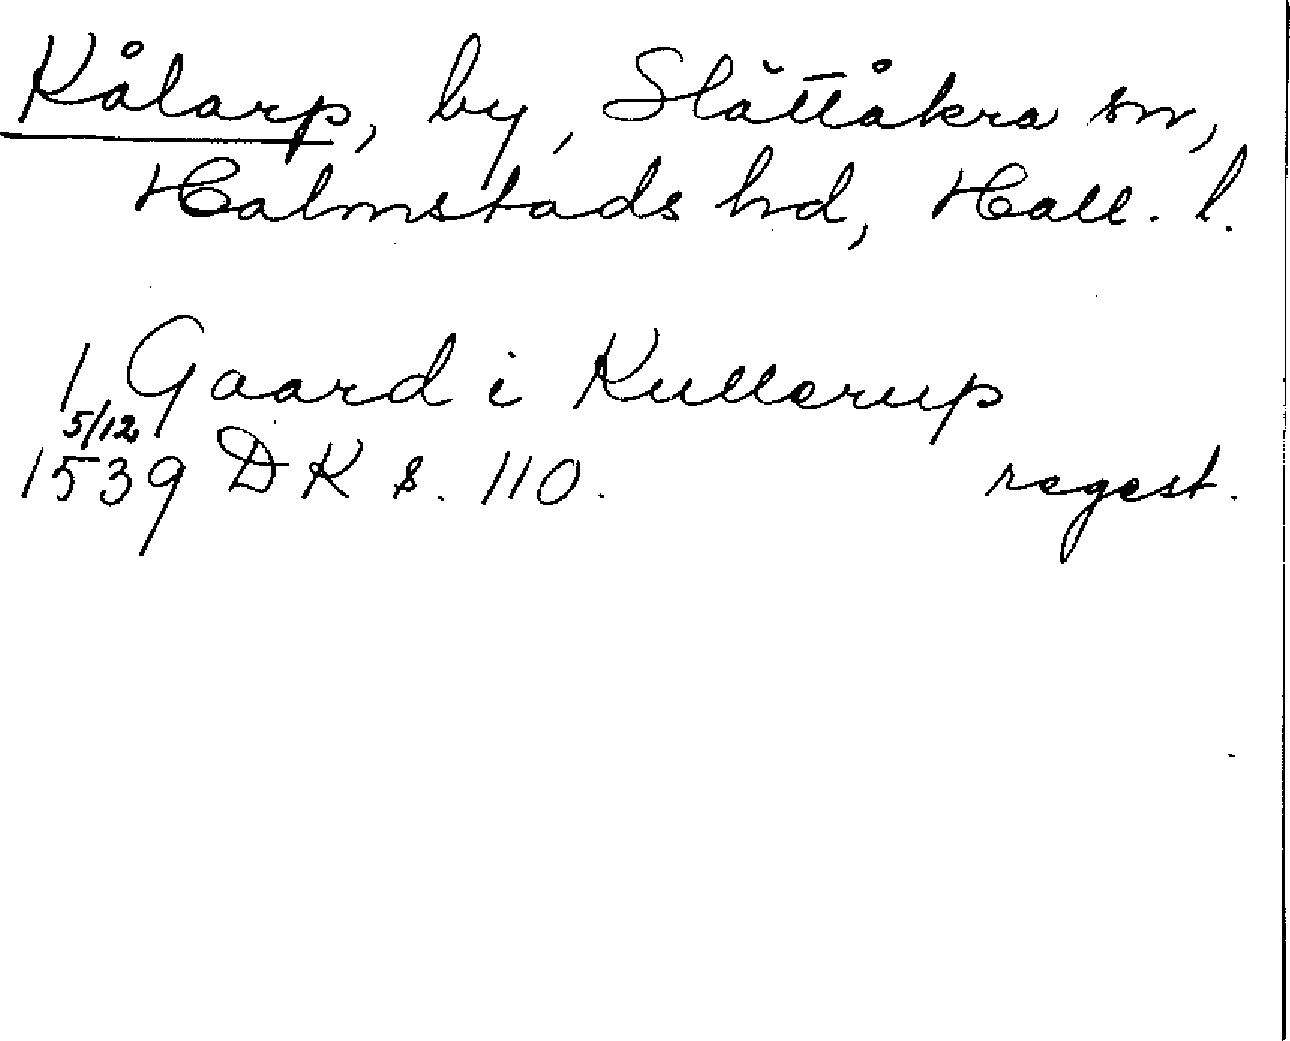 Kålarp, by, Slättåkra sn,
Halmstads hd, Hall. l.
1 Gaard i Kullerup
5/12
1539 DK s. 110. regest.